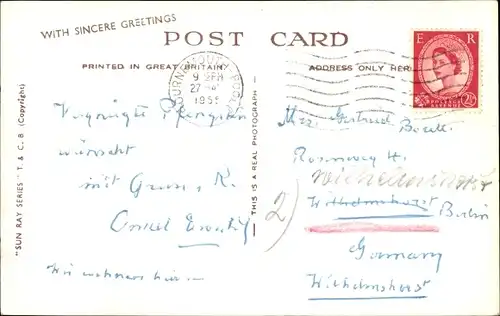 WITH SINCERE GREETINGS
POST CARD
PRINTED IN GREAT BRITAIN
ADDRESS ONLY HERE
"SUN RAY SERIES" T. & C. B (Copyright)
THIS IS A REAL PHOTOGRAPH
E R
POSTAGE
REVENUE
2½
BOURNEMOUTH-POOLE
9 PM
27
195
Vergnügte Pfingsten
wünscht
mit Gruss, K.
Onkel
Wir wohnen hier
Mrs. Gertrud
H.
2)
Wilhelmshorst
Berlin
Germany
Wilhelmshorst